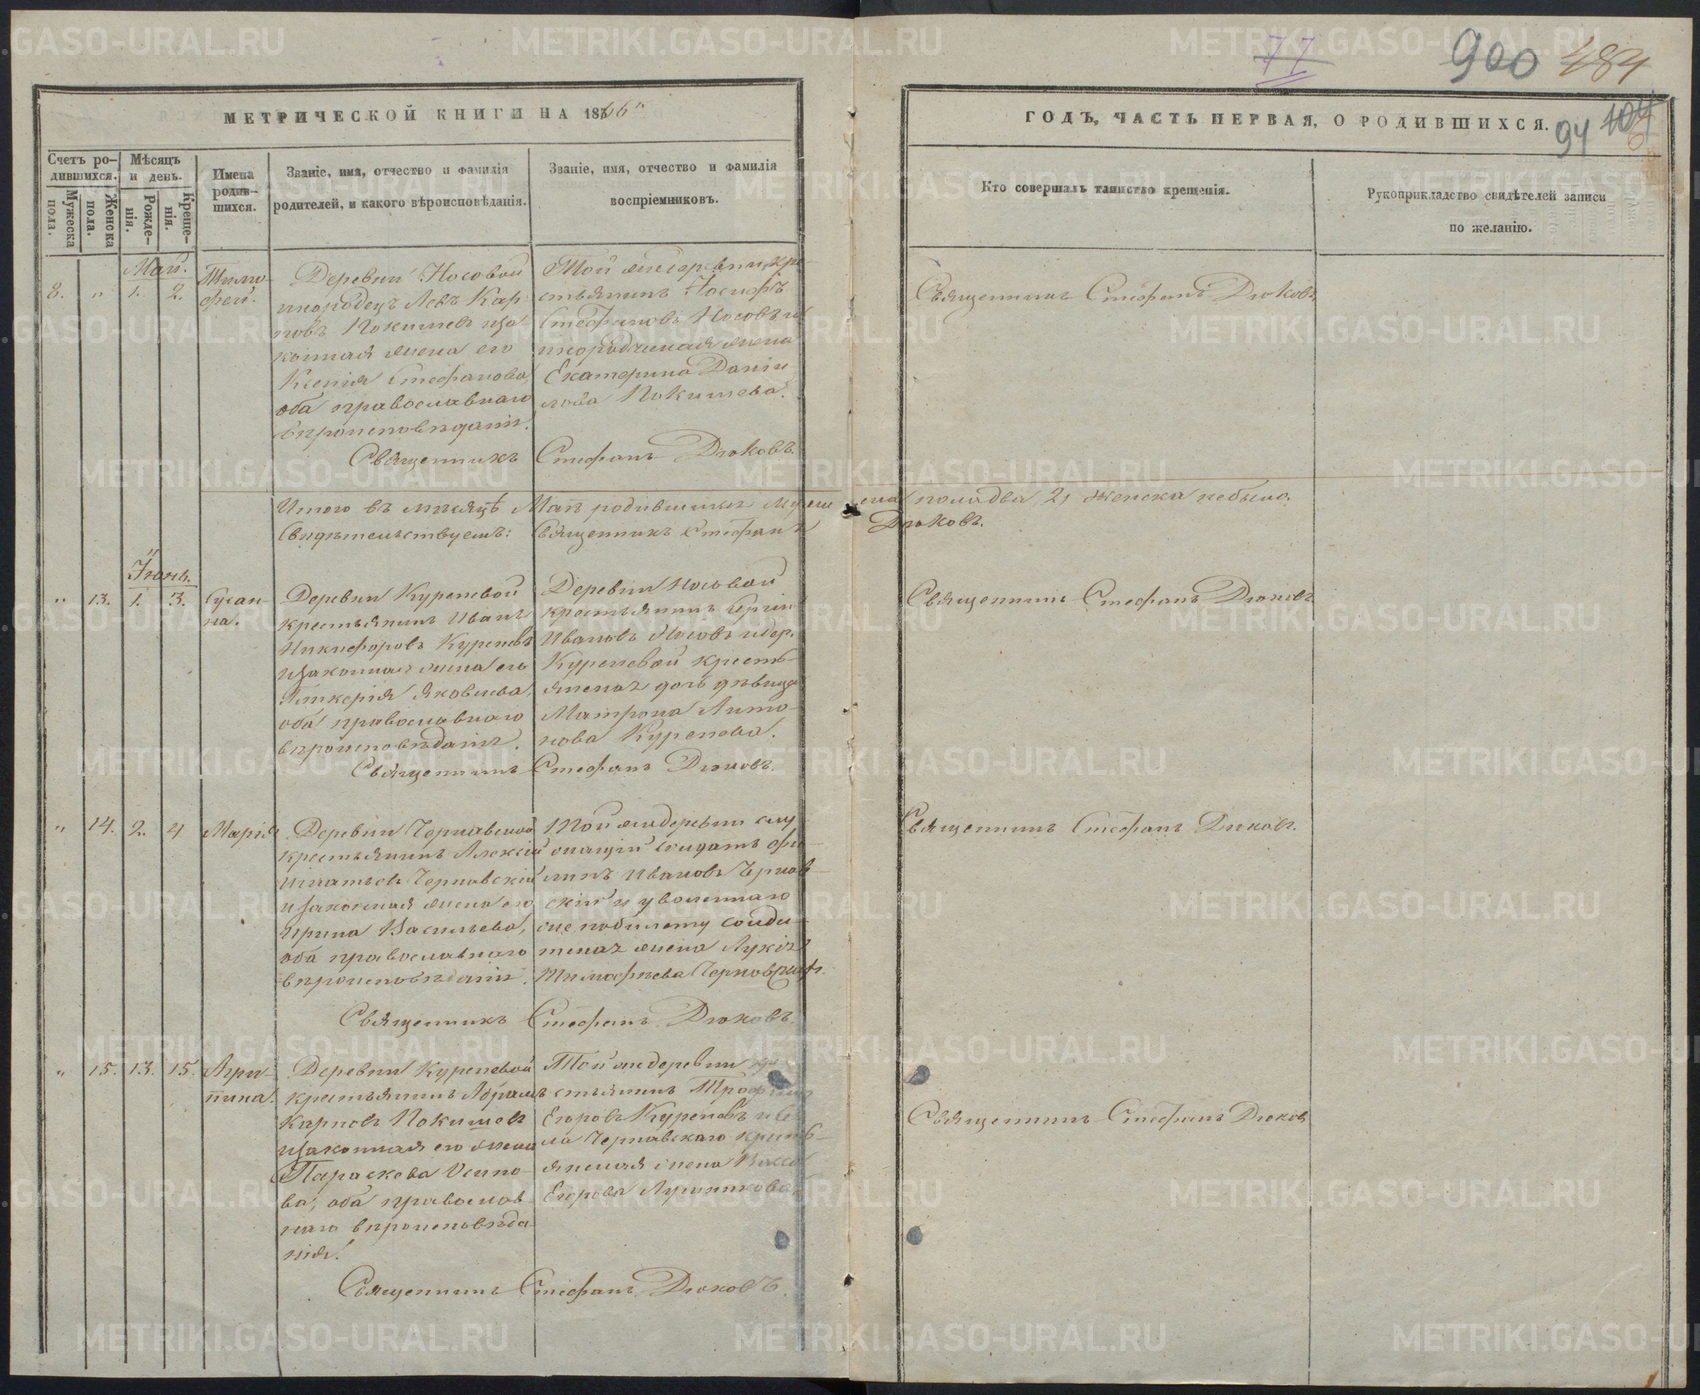 77
900 484
МЕТРИЧЕСКОЙ КНИГИ НА 1866
ГОДЪ, ЧАСТЬ ПЕРВАЯ, О РОДИВШИХСЯ.
94 104
Счетъ ро-
дившихся.
Мужеска
пола.
Женска
пола.
Мѣсяцъ
и день.
Рожде-
нія.
Креще-
нія.
Имена
родив-
шихся.
Званіе, имя, отчество и фамилія
родителей, и какого вѣроисповѣданія.
Званіе, имя, отчество и фамилія
воспріемниковъ.
Кто совершалъ таинство крещенія.
Рукоприкладство свидѣтелей записи
по желанію.
Май.
8. " 1. 2.
Тимо-
фей.
Деревни Носовой
инородецъ Левъ Кар-
повъ Покишевъ и за-
конная жена его
Ксенія Стефанова,
оба православнаго
вѣроисповѣданія.
Той же деревни кре-
стьянинъ Іосифъ
Стефановъ Носовъ и
инородческая жена
Екатерина Даніи
лова Покишева.
Священникъ Стефанъ Дюковъ.
Священникъ Стефанъ Дюковъ
Итого въ мѣсяцѣ Маѣ родившихся мужеска пола два 2, женска небыло.
Свидѣтельствуетъ: Священникъ Стефанъ Дюковъ.
Іюнь.
" 13. 1. 3.
Сусан-
на.
Деревни Куреневой
крестьянинъ Иванъ
Никифоровъ Куреневъ
и законная жена его
Гликерія Яковлева,
оба православнаго
вѣроисповѣданія.
Деревни Носовой
крестьянинъ Сергій
Ивановъ Носовъ и дер.
Куреневой кресть-
янская дочь дѣвица
Матрона Анто-
нова Куренева.
Священникъ Стефанъ Дюковъ.
Священникъ Стефанъ Дюковъ
" 14. 2. 4
Марія
Деревни Чернавской
крестьянинъ Алексій
Игнатьевъ Чернавскій
и законная жена его
Ирина Васильева,
оба православнаго
вѣроисповѣданія.
Той же деревни слу-
жащій солдатъ Фи-
липъ Ивановъ Чернав-
скій и уволеннаго
по билету солда-
тская жена Лукія
Тимофѣева
Священникъ Стефанъ Дюковъ.
Священникъ Стефанъ Дюковъ.
" 15. 13. 15.
Агри-
пина.
Деревни Куреневой
крестьянинъ Абрамъ
Карповъ Покишевъ
и законная его жена
Параскева Осипо-
ва, оба православ-
наго вѣроисповѣда
нія.
Той же деревни кре-
стьянинъ Трофимъ
Егоровъ Куреневъ и се-
ла Чернавскаго кресть-
янская жена
Егорова
Священникъ Стефанъ Дюковъ.
Священникъ Стефанъ Дюковъ